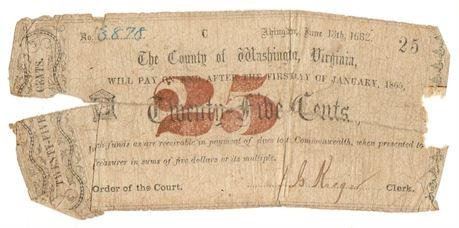 No. 3878 C Abingdon, June 13th, 1862. 25
The County of Washington, Virginia,
WILL PAY ON AND AFTER THE FIRST DAY OF JANUARY, 1865,
25
Twenty-Five Cents,
in such funds as are receivable in payment of dues to the Commonwealth, when presented to
Treasurer in sums of five dollars or its multiple.
Order of the Court. Clerk.
CENTS.
TWENTY-FI